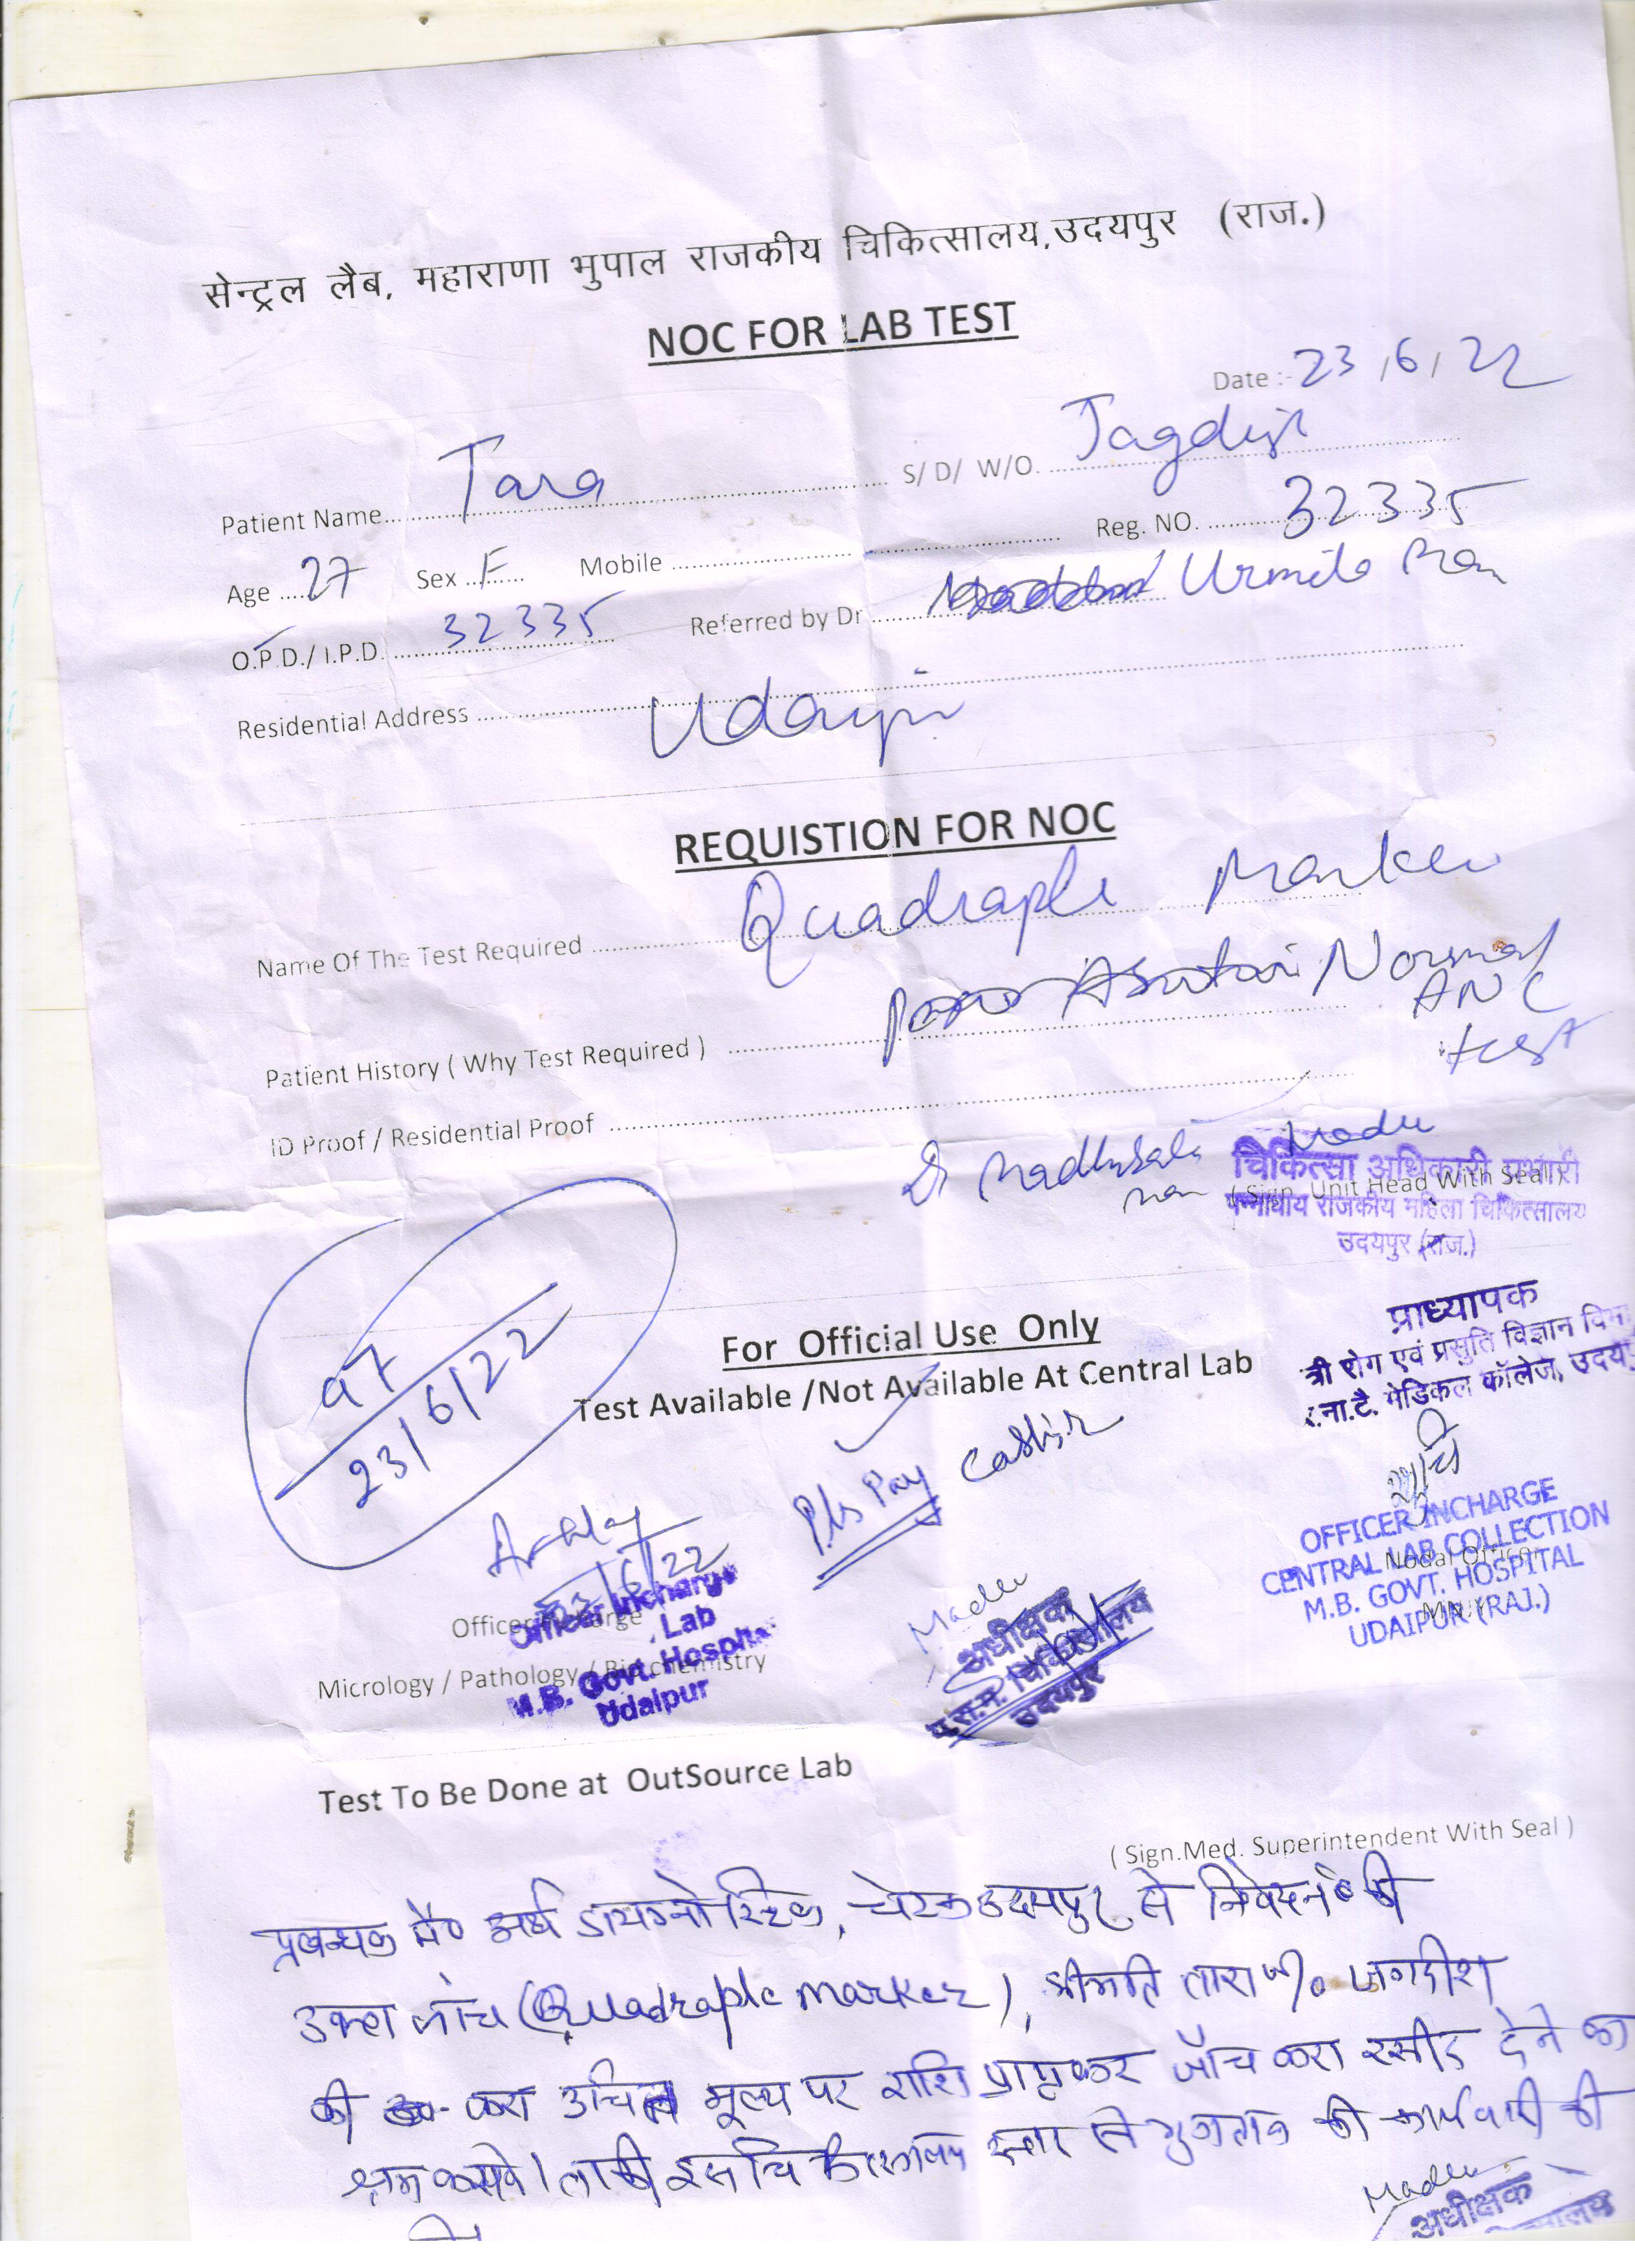 सेन्ट्रल लैब, महाराणा भुपाल राजकीय चिकित्सालय,उदयपुर (राज.)
NOC FOR LAB TEST
Date :- 23/6/22
Patient Name Tara S/ D/ W/O. Jagdish
Age 27 Sex F Mobile Reg. NO. 32335
O.P.D./ I.P.D. 32335 Referred by Dr Urmila
Residential Address Udaipur
REQUISTION FOR NOC
Name Of The Test Required Quadraple Marker
Patient History ( Why Test Required ) Normal
ANC
test
ID Proof / Residential Proof
Dr Madhubala Madhu
( Sign. Unit Head With Seal )
चिकित्सा अधिकारी प्रभारी
पन्नाधाय राजकीय महिला चिकित्सालय
उदयपुर (राज.)
97
23/6/22
For Official Use Only
Test Available /Not Available At Central Lab
प्राध्यापक
स्त्री रोग एवं प्रसुति विज्ञान
र.ना.टै. मेडिकल कॉलेज, उदयपुर
Pls Pay Cashir
22
Officer Incharge
Officer Incharge
Lab
M.B. Govt. Hospital
Udaipur
Micrology / Pathology / Biochemistry
Madhu
अधीक्षक
चिकित्सालय
उदयपुर
OFFICER INCHARGE
CENTRAL LAB COLLECTION
Nodal Officer
M.B. GOVT. HOSPITAL
MNJY
UDAIPUR (RAJ.)
Test To Be Done at OutSource Lab
( Sign.Med. Superintendent With Seal )
प्रबन्धक मै० अर्थ डायग्नोस्टिक, चेटक उदयपुर से निवेदन है की
उक्त जांच (Quadraple marker), श्रीमति तारा w/o जगदीश
की करा उचित मूल्य पर राशि प्राप्त कर जाँच करा रसीद देने का
श्रम करावे। ताकी इस चिकित्सालय स्तर से भुगतान की कार्यवाही की
Madhu
अधीक्षक